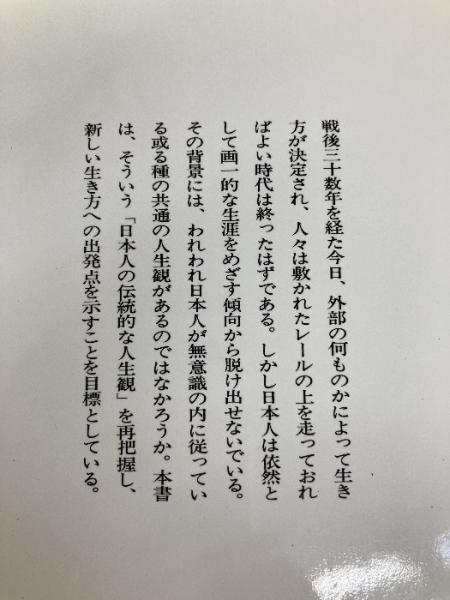 戦後三十数年を経た今日、外部の何ものかによって生き
方が決定され、人々は敷かれたレールの上を走っておれ
ばよい時代は終ったはずである。しかし日本人は依然と
して画一的な生涯をめざす傾向から脱け出せないでいる。
その背景には、われわれ日本人が無意識の内に従ってい
る或る種の共通の人生観があるのではなかろうか。本書
は、そういう「日本人の伝統的な人生観」を再把握し、
新しい生き方への出発点を示すことを目標としている。